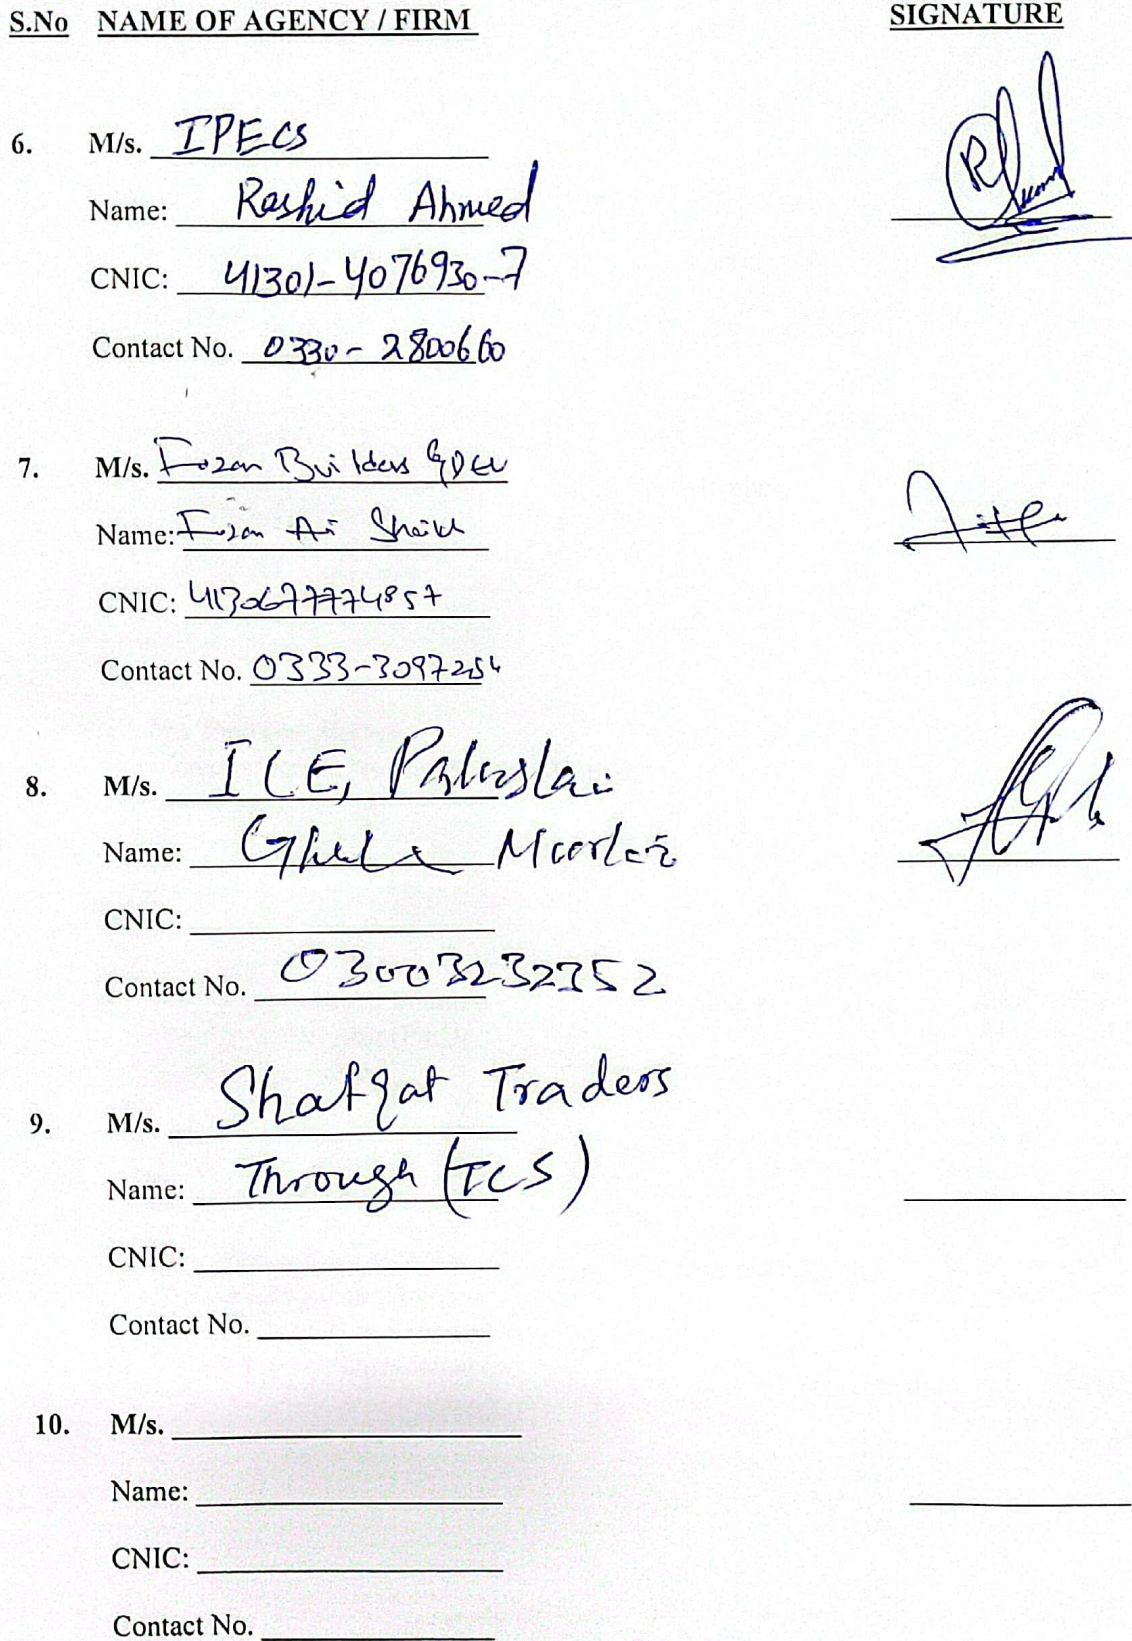 S.No NAME OF AGENCY / FIRM SIGNATURE
6. M/s. IPECS
Name: Rashid Ahmed
CNIC: 41301-4076930-7
Contact No. 0330-2800660
7. M/s. Fozan Builders & Dev
Name: Fozan Ali Shaikh
CNIC: 4130677774857
Contact No. 0333-3097254
8. M/s. ICE, Pakistan
Name:
CNIC:
Contact No. 03003232352
9. M/s. Shafqat Traders
Name: Through (TCS)
CNIC:
Contact No.
10. M/s.
Name:
CNIC:
Contact No.